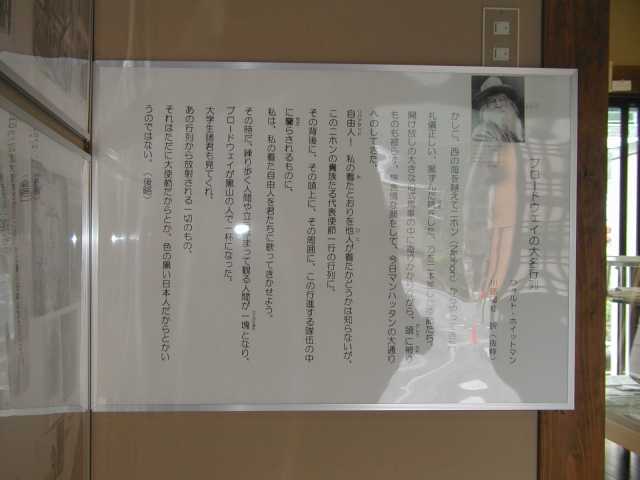 ブロードウェイの大名行列
ウォルト・ホイットマン
訳（抜粋）
かしこ、西の海を越えてニホン
礼儀正しい、
開け放しの大きな
ものも被らず、無表情な顔をして、今日マンハッタンの大通り
へのして来た。
自由人！　私の看たとおりを他人が看たかどうかは知らないが、
このニホンの貴族たる代表使節一行の行列に、
その背後に、その頭上に、その周囲に、この行進する隊伍の中
に齎らされるものに、
私は、私の看た自由人を君たちに歌ってきかせよう。
その時だ、練り歩く人間や立ち止まって観る人間が一塊となり、
ブロードウェイが黒山の人で一杯になった。
大学生諸君も見てくれ、
あの行列から放射される一切のもの、
それはただに大使節だからとか、色の黒い日本人だからとかい
うのではない、（後略）